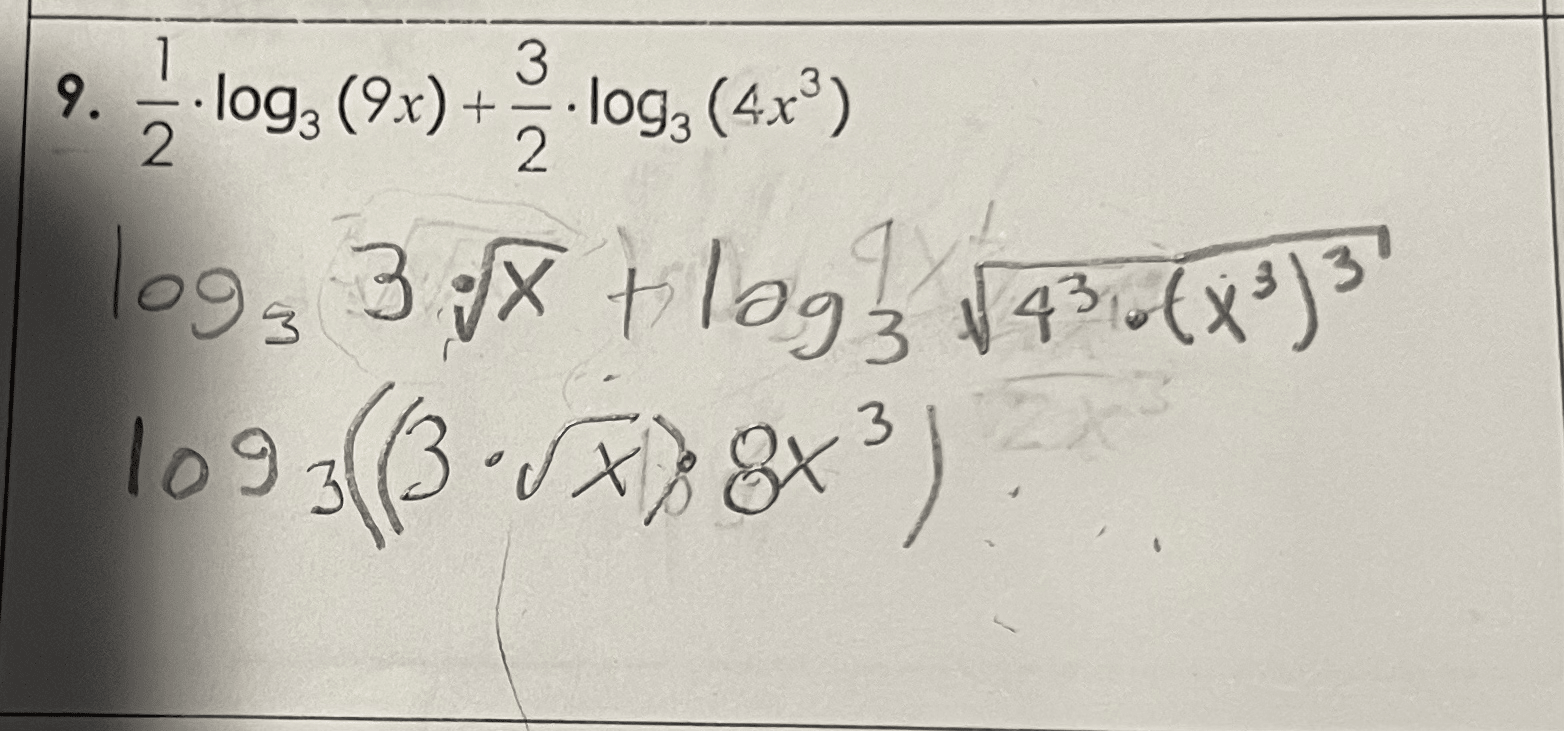 9. 1/2 · log₃ (9x) + 3/2 · log₃ (4x³)
log₃ 3·√x + log₃ √4³·(x³)³
log₃((3·√x)·8x³)